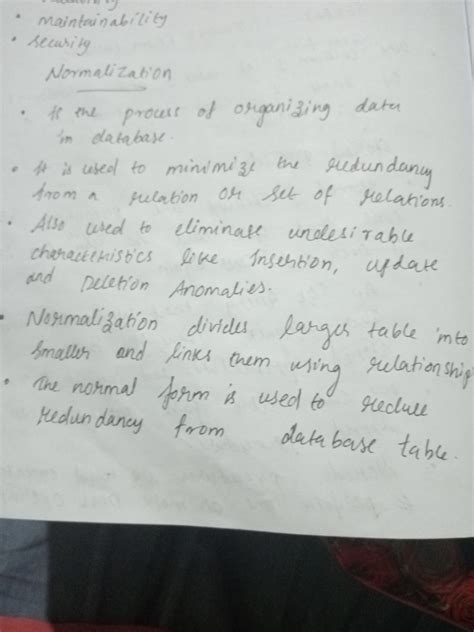 • maintainability
• security
Normalization
• Is the process of organizing data
in database.
• It is used to minimize the redundancy
from a relation or set of relations.
• Also used to eliminate undesirable
characteristics like Insertion, update
and Deletion Anomalies.
• Normalization divides larger table into
smaller and links them using relationship
• The normal form is used to reduce
redundancy from database table.